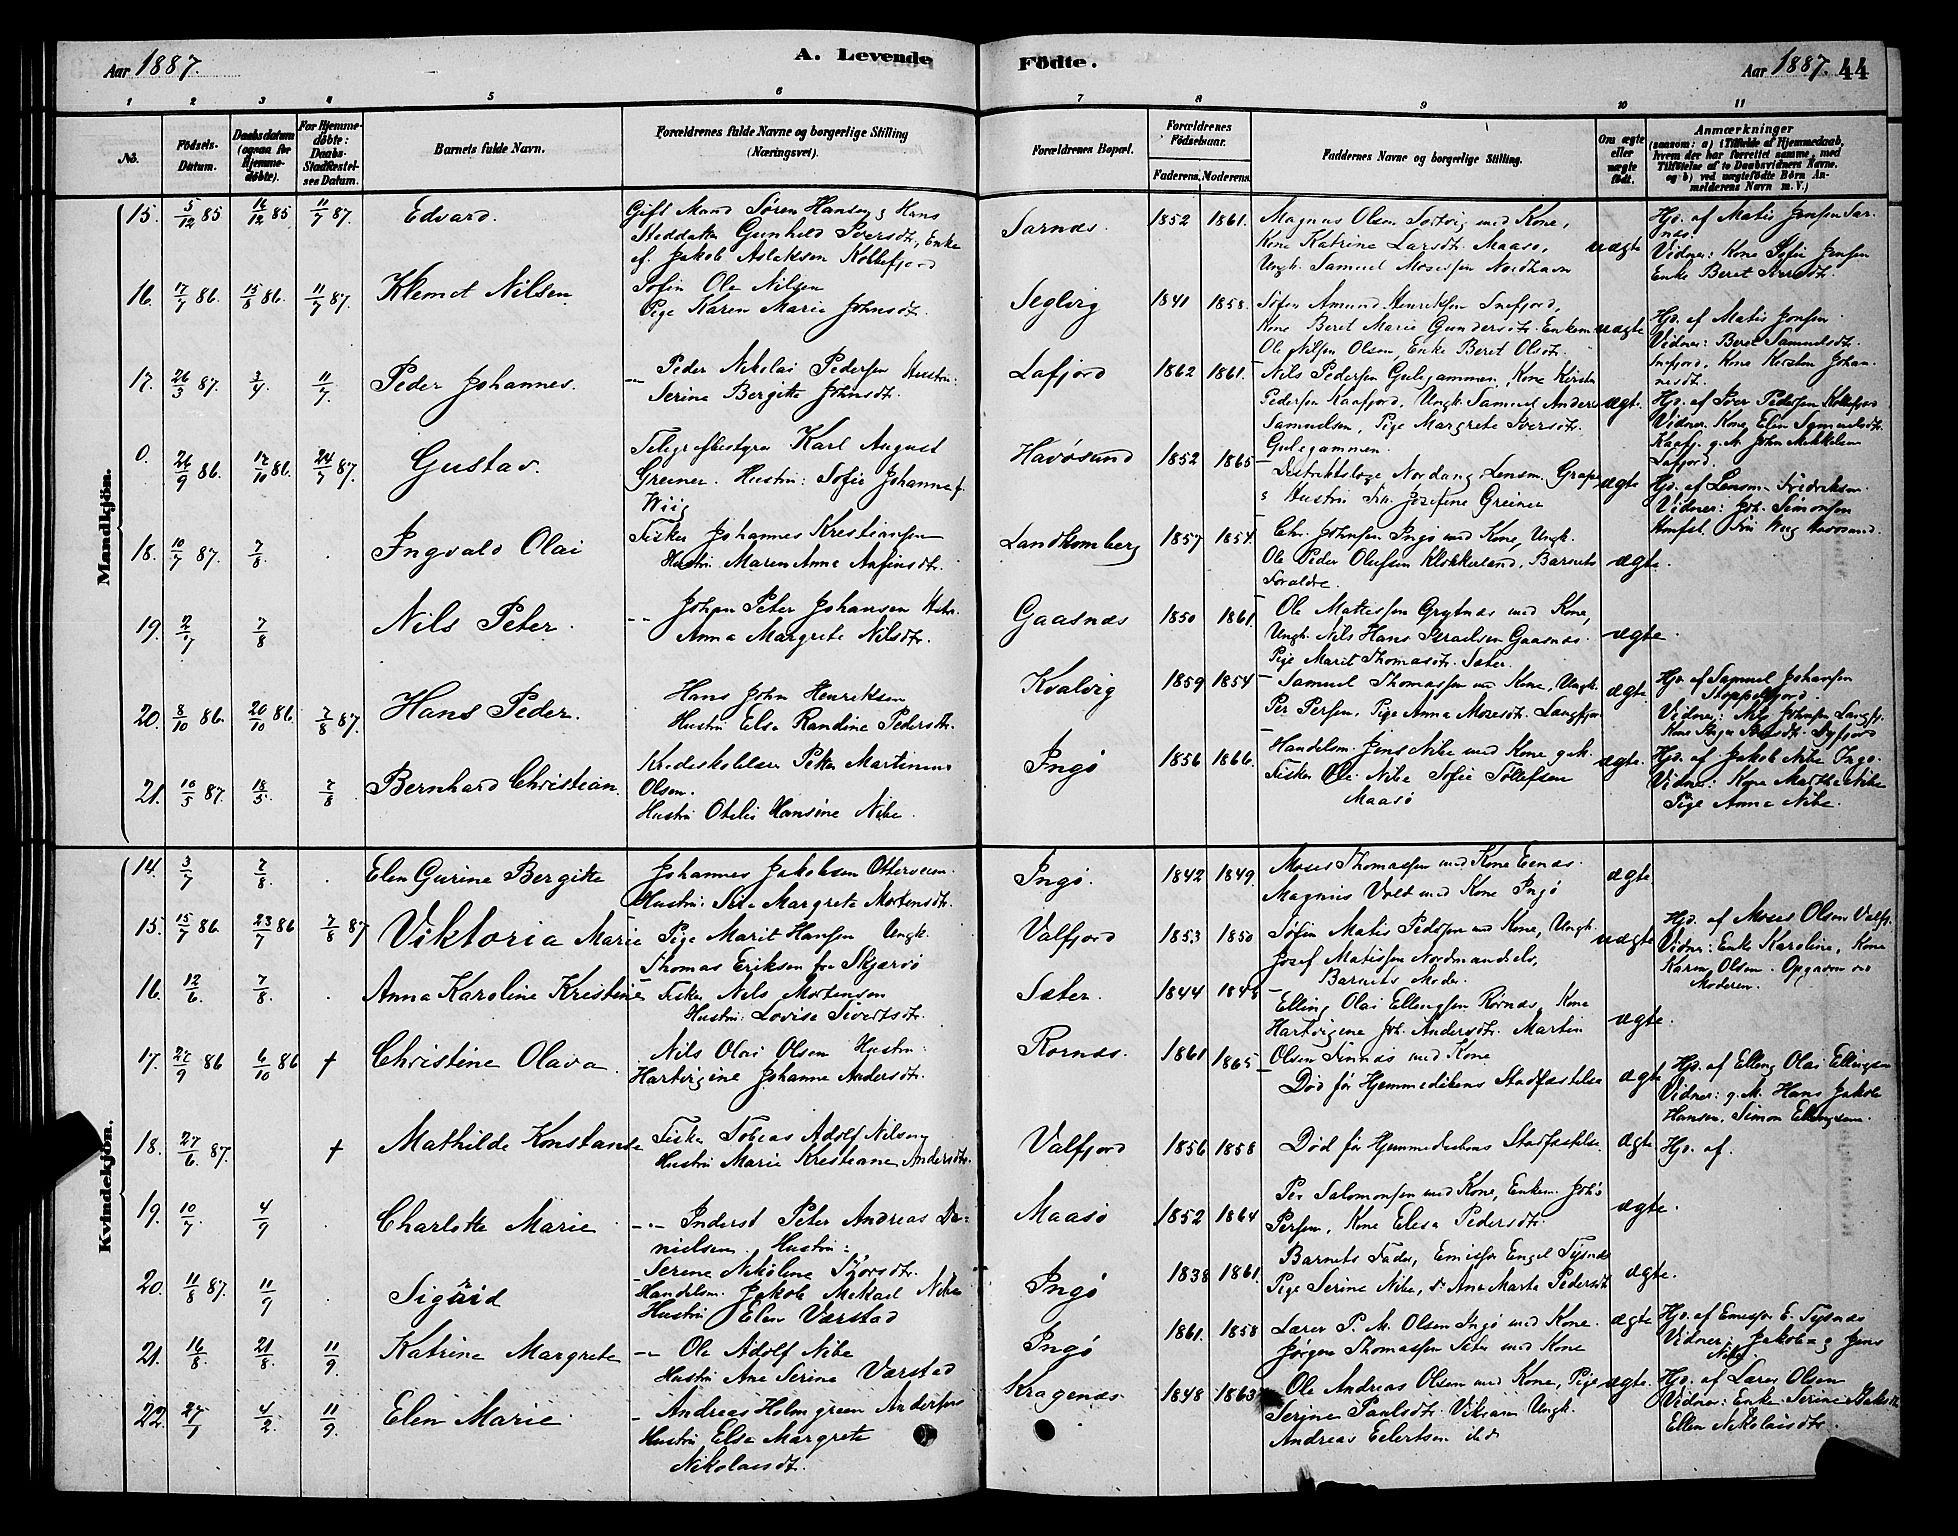 Aar 1887.
A. Levende Födte.
Aar 1887. 44
1 2 3 4 5 6 7 8 9 10 11
No.
Födsels-Datum.
Daabsdatum (ogsaa for Hjemme-döbte).
For Hjemme-döbte: Daabs-Stadfæstel-ses Datum.
Barnets fulde Navn.
Forældrenes fulde Navne og borgerlige Stilling (Næringsvei).
Forældrenes Bopæl.
Forældrenes Födselsaar.
Faderens. Moderens.
Faddernes Navne og borgerlige Stilling.
Om ægte eller uægte födt.
Anmærkninger
(saasom: a) i Tilfælde af Hjemmedaab, hvem der har forrettet samme, med Tilföielse af to Daabsvidners Navne, og b) ved uægtefödte Börn An-melderens Navn m. V.)
Mandkjön.
15. 5/12 85 /12 85 11/7 87. Edvard.
Gift Mand Søren Hansen, Hans
Steddatter Gunhild Iversdt., Enke
af Jakob Aslaksen Kollefjord
Sarnæs. 1852 1861.
Magnus Olsen Sortvig med Kone,
Kone Katrine Larsdt. Maasø,
Ungk. Samuel Mosessen Nordhavn
uægte
Hjd. af Matis Jensen Sar-
næs.
Vidner: Kone Sofie Jensen
Enke Beret Iversdt.
16. 17/7 86. 15/8 86. 11/7 87. Klemet Nilsen
Søfin Ole Nilsen
Pige Karen Marie Johnsdt.
Seglvig 1841 1858.
Søfin Amund Henriksen Snefjord,
Kone Beret Marie Gundersdt. Enkem
Ole Nilsen Olsen, Enke Beret Olsdt.
uægte
Hjd. af Matis Jensen
Vidner: Beret Samuelsdt.
Snefjord, Kone Kirsten Johan-
nesdt.
17. 26/3 87. 3/4 11/7 Peder Johannes.
Peder Nikolai Pedersen Hustru:
Serine Bergitte Johnsdt.
Lafjord 1862 1861.
Nils Pedersen Gulegammen, Kone Kirsten
Pedersen Kaafjord, Ungk. Samuel Anders
Samuelsen, Pige Margrete Iversdt.
Gulegammen.
ægte.
Hjd. af Iver Pedersen Kollefjord
Vidner. Kone Elen Samuelsdt.
Kaafj. g. M. John Mikkelsen
Lafjord.
0. 26/9 86. 17/10 86. 24/7 87. Gustav.
Telegrafbestyrer Karl August
Greiner. Hustru: Sofie Johanne f.
Wiig
Havøsund 1852 1865
Distriktslæge Nordang Lensm.
Hustru Frk. Josefine Greiner
ægte
Hjd. af Lensm. Fredriksen
Vidner: Joh. Simonsen
Fru Wiig Havøsund.
18. 10/7 87. 7/8 Ingvald Olai
Fisker Johannes Kristiansen
Hustru Maren Anna Anfinsdt.
Landkomberg 1857 1854.
Chr. Johnsen Ingø med Kone, Ungk.
Ole Peder Olufsen Klokkerland, Barnets
Foraldre.
ægte.
19. 2/7 7/8 Nils Peter.
Johan Peter Johansen Hustr.
Anna Margrete Nilsdt.
Gaasnæs 1850 1861.
Ole Mathissen Grytnæs med Kone,
Ungk. Nils Hans Israelsen Gaasnæs.
Pige Marit Thomasdt. Sæter.
ægte.
20. 8/10 86. 20/10 86. 7/8 87. Hans Peder.
Hans John Henriksen
Hustru Else Randine Pedersdt.
Kvalvig 1859 1854
Samuel Thomassen med Kone, Ungk.
Per Persen, Pige Anna Mosesdt. Langfjor
ægte
Hjd. af Samuel Johansen
Stoppelfjord.
Vidner: Nils Johnsen Langfj.
21. 10/5 87. 18/5 7/8 Bernhard Christian.
Kredsskolelærer Peter Martinius
Olsen.
Hustru Otelie Hansine Nibe.
Ingø 1856 1866.
Handelsm. Jens Nibe med Kone g. M.
Fisker Ole Nibe Sofie Tollefsen
Maasø
ægte.
Hjd. af Jakob Nibe Ingø.
Vidner: Kone Marthe Nibe
Pige Anna Nibe.
Kvindekjön.
14. 3/7 7/8. Elen Gurine Bergitte
Johannes Jakobsen
Hustru: Margrete Mortensdt.
Ingø. 1842 1849.
Moses Thomassen med Kone
Magnus Volt med Kone Ingø
ægte
15. 15/7 86. 23/7 86 7/8 87 Viktoria Marie
Pige Marit Hansen Ungk.
Thomas Eriksen fra Skjærvø
Valfjord 1853 1850
Søfin Matis Pedersen med Kone, Ungk.
Josef Matissen Nordmandselv,
Barnets Moder.
uægte
Hjd. af Moses Olsen Valfj.
Vidner: Enke Karoline, Kone
Karen Olsen. Opgaven
Moderen.
16. 12/6. 7/8. Anna Karoline Kristine
Fisker Nils Mortensen
Hustru: Lovise Sivertsdt.
Sæter. 1844 1848
Elling Olai Ellingsen Rornæs, Kone
Hartvigine Joh. Andersdt. Martin
Olsen Finnæs med Kone
ægte.
17. 27/9 86 6/10 86 † Christine Olava
Nils Olai Olsen Hustru:
Hartvigine Johanne Andersdt.
Rornæs. 1861 1865
Død før Hjemmedåbens Stadfæstelse
ægte
Hjd. af Elling Olai Ellingsen
Vidner: g. M. Hans Jakob
Hansen, Simon Ellingsen.
18. 27/6. 87. † Mathilde Konstanse
Fisker Tobias Adolf Nilsen
Hustru Marie Kristiane Andersdt.
Valfjord 1856 1858
Død før Hjemmedaabens Stadfæstelse.
ægte
Hjd. af.
19. 10/7 4/9 Charlotte Marie
Inderst Peter Andreas Da-
nielsen. Hustru:
Serene Nikoline
Maasø 1852 1864
Per Salomonsen med Kone, Enkem. Joh's
Persen, Kone Elisa Pedersdt.
ægte.
20. 11/8 87. 11/9 Sigrid
Handelsm. Jakob Mikael Nibe
Hustru Elen Værstad
Ingø 1838 1861.
Barnets Fader, Emissær Engel Tysnæs
Pige Serine Nibe, do Ane Marta Pedersdt
ægte.
21. 16/8. 21/8. 11/9. Katrine Margrete
Ole Adolf Nibe
Hustru Ane Serine Værstad
Ingø 1861. 1858
Lærer P. M. Olsen Ingø med Kone.
Jørgen Thomassen Sæter med Kone
ægte
Hjd. af Emissær E. Tysnæs
Vidner: Jakob og Jens
Nibe
22. 27/1 4/2 11/9. Elen Marie.
Andreas Holmgreen Andersen
Hustru Else Margrete
Nikolaisdt.
Kragenæs 1848 1863
Ole Andreas Olsen med Kone, Pige
Serine Paulsdt. Viksøren Ungk.
Andreas Eilertsen
ægte.
Hjd. af Lærer Olsen
Vidner: Enke Serine
Ellen Nikolaisdt.